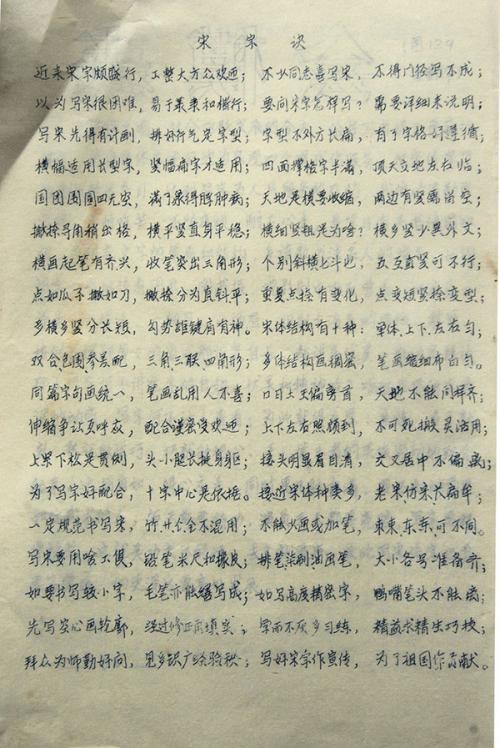 宋字诀
图129
近来宋字颇盛行，工整大方众欢迎；不少同志喜写宋，不得门径写不成；
以为写宋很困难，易于柔来和横行；要问宋字怎样写？需要详细来说明；
写宋先得有计划，排好行气定字型；字型不外方长扁，有了字格好遵循；
横幅适用长型字，竖幅扁字才适用；四面撑格字半满，顶天立地左右临；
国团圆固四元空，满了显得臃肿病；天地是横要收缩，两边有竖需留空；
撇捺弯角稍出格，横平竖直身平稳；横细竖粗是为啥？横多竖少异外文；
横画起笔有齐兴，收笔突出三角形；个别斜横七斗也，五互直竖可不行；
点如瓜子撇如刀，撇捺分为直斜平；重复点捺有变化，点交短竖捺变型；
多横多竖分长短，勾势雄键肩有神。宋体结构有十种：单体、上下、左右匀；
双合包围参差配，三角三联四角形；多体结构画稠密，笔画缩细布白匀。
同篇字句画统一，笔画乱用人不喜；口日土王偏旁首，天地不能同样齐；
伸缩争让互呼应，配合谨密受欢迎；上下左右照顾到，不可死搬灵活用；
上紧下松是贯例，头小腿长挺身躯；接头明显眉目清，交叉居中不偏离；
为了写宋好配合，十字中心是依据。接近宋体种类多，老宋仿宋长扁牟；
一定规范书写宋，竹、廾个全不混用；不能少画或加笔，束束、东东、可不同。
写宋要用啥工俱，铅笔米尺和橡皮；排笔染刷油画笔，大小各号准备齐；
如要书写较小字，毛笔亦能描写成；如写高度精密字，鸭嘴笔头不能离；
先写空心画轮廓，经过修正再填实；学而不厌多习练，精益求精生巧技；
拜众为师勤好问，见多识广经验积；写好宋字作宣传，为了祖国作贡献。